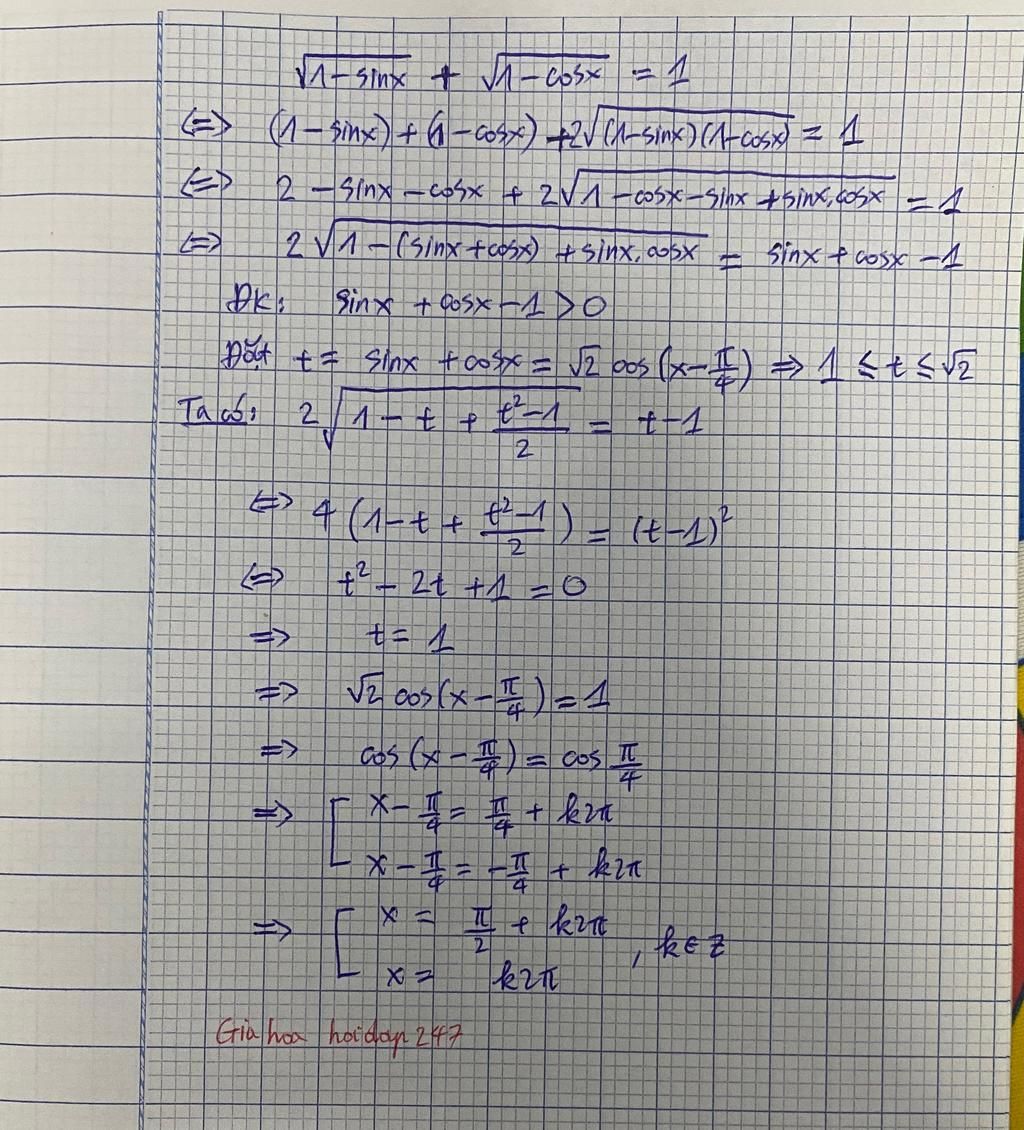 √(1-sinx) + √(1-cosx) = 1
<=> (1-sinx) + (1-cosx) + 2√((1-sinx)(1-cosx)) = 1
<=> 2 - sinx - cosx + 2√(1-cosx-sinx+sinx.cosx) = 1
<=> 2√(1-(sinx+cosx)+sinx.cosx) = sinx + cosx - 1
ĐK: sinx + cosx - 1 > 0
Đặt t = sinx + cosx = √2 cos(x - π/4) => 1 ≤ t ≤ √2
Ta có: 2√(1 - t + (t²-1)/2) = t - 1
<=> 4(1 - t + (t²-1)/2) = (t-1)²
<=> t² - 2t + 1 = 0
=> t = 1
=> √2 cos(x - π/4) = 1
=> cos(x - π/4) = cos π/4
=> [ x - π/4 = π/4 + k2π
x - π/4 = -π/4 + k2π
=> [ x = π/2 + k2π
x = k2π , k∈Z
Gia hoa hoidap247